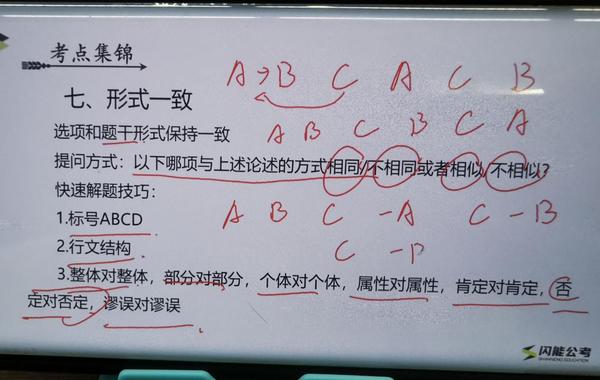 考点集锦
A→B C A C B
七、形式一致
选项和题干形式保持一致
A B C B C A
提问方式：以下哪项与上述论述的方式相同/不相同或者相似/不相似？
快速解题技巧：
1.标号ABCD
A B C -A C -B
2.行文结构
C -
3.整体对整体，部分对部分，个体对个体，属性对属性，肯定对肯定，否
定对否定，谬误对谬误
闪能公考
SHANNENG EDUCATION